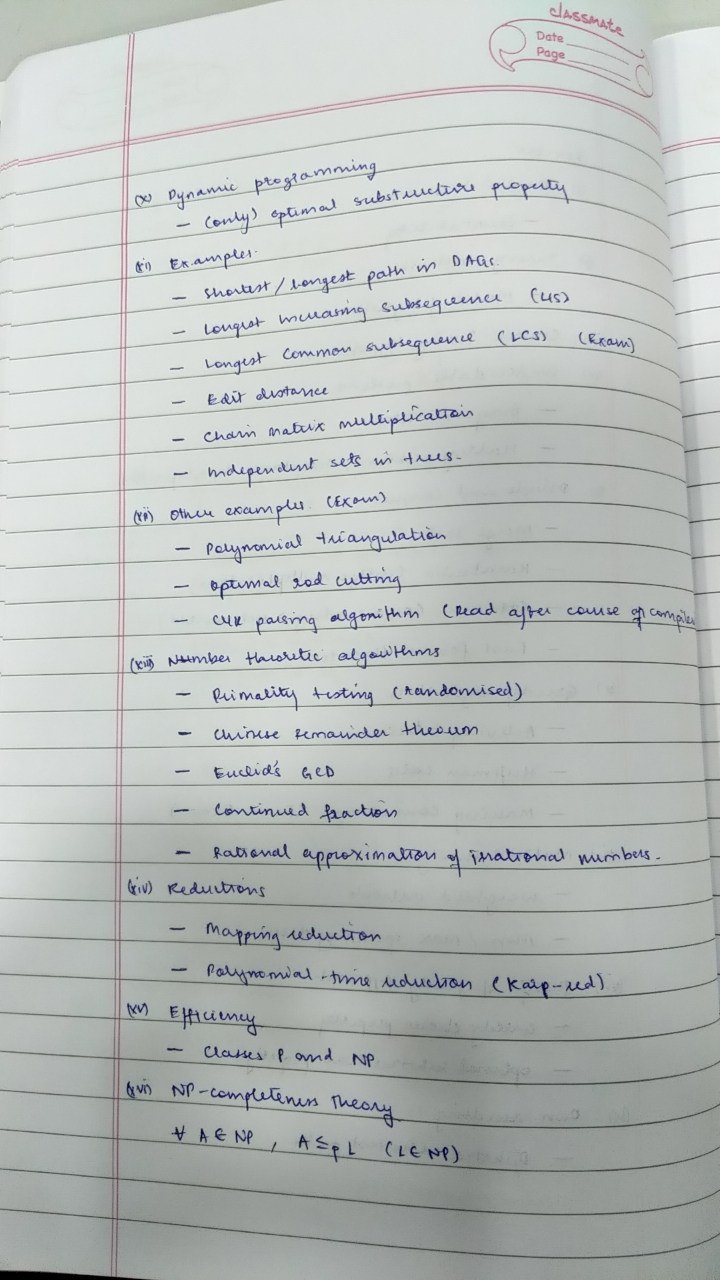 classmate
Date
Page
(x) Dynamic programming
- (only) optimal substructure property
(xi) Examples.
- Shortest/longest path in DAGs.
- Longest increasing subsequence (LIS)
- Longest common subsequence (LCS) (Exam)
- Edit distance
- Chain matrix multiplication
- Independent sets in trees.
(xii) Other examples. (Exam)
- Polynomial triangulation
- optimal rod cutting
- CYK parsing algorithm (Read after course of compiler
(xiii) Number theoretic algorithms
- Primality testing (randomised)
- Chinese remainder theorem
- Euclid's GCD
- Continued fraction
- Rational approximation of irrational numbers.
(xiv) Reductions
- Mapping reduction
- Polynomial-time reduction (Karp-red)
(xv) Efficiency
- Classes P and NP
(xvi) NP-completeness Theory
∀ A ∈ NP, A ≤p L (L ∈ NP)